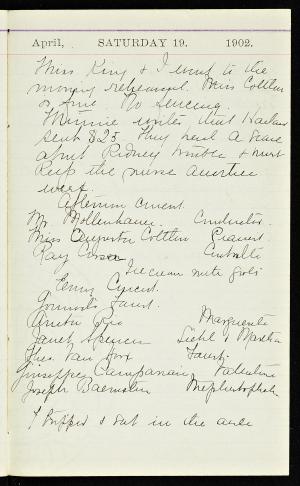 April, SATURDAY 19. 1902.
Miss King & I went to the
morning rehearsal. Miss Cottlow
is fine. No
Minnie writes that
sent $25. They had a scare
about Kidney trouble & must
keep the nurse another
week.
Afternoon concert.
Mr. Mollenhauer. Conductor.
Miss Augusta Cottlow Pianist
Ray
Ice cream with girls
Eveng Concert.
Gounod's Faust.
Marguerite
Janet Spencer Siebel & Martha
Theo. Van Yorx Faust.
Giuseppe Campanari Valentine
Joseph Baernstein Mephistopheles
I & sat in the aisle